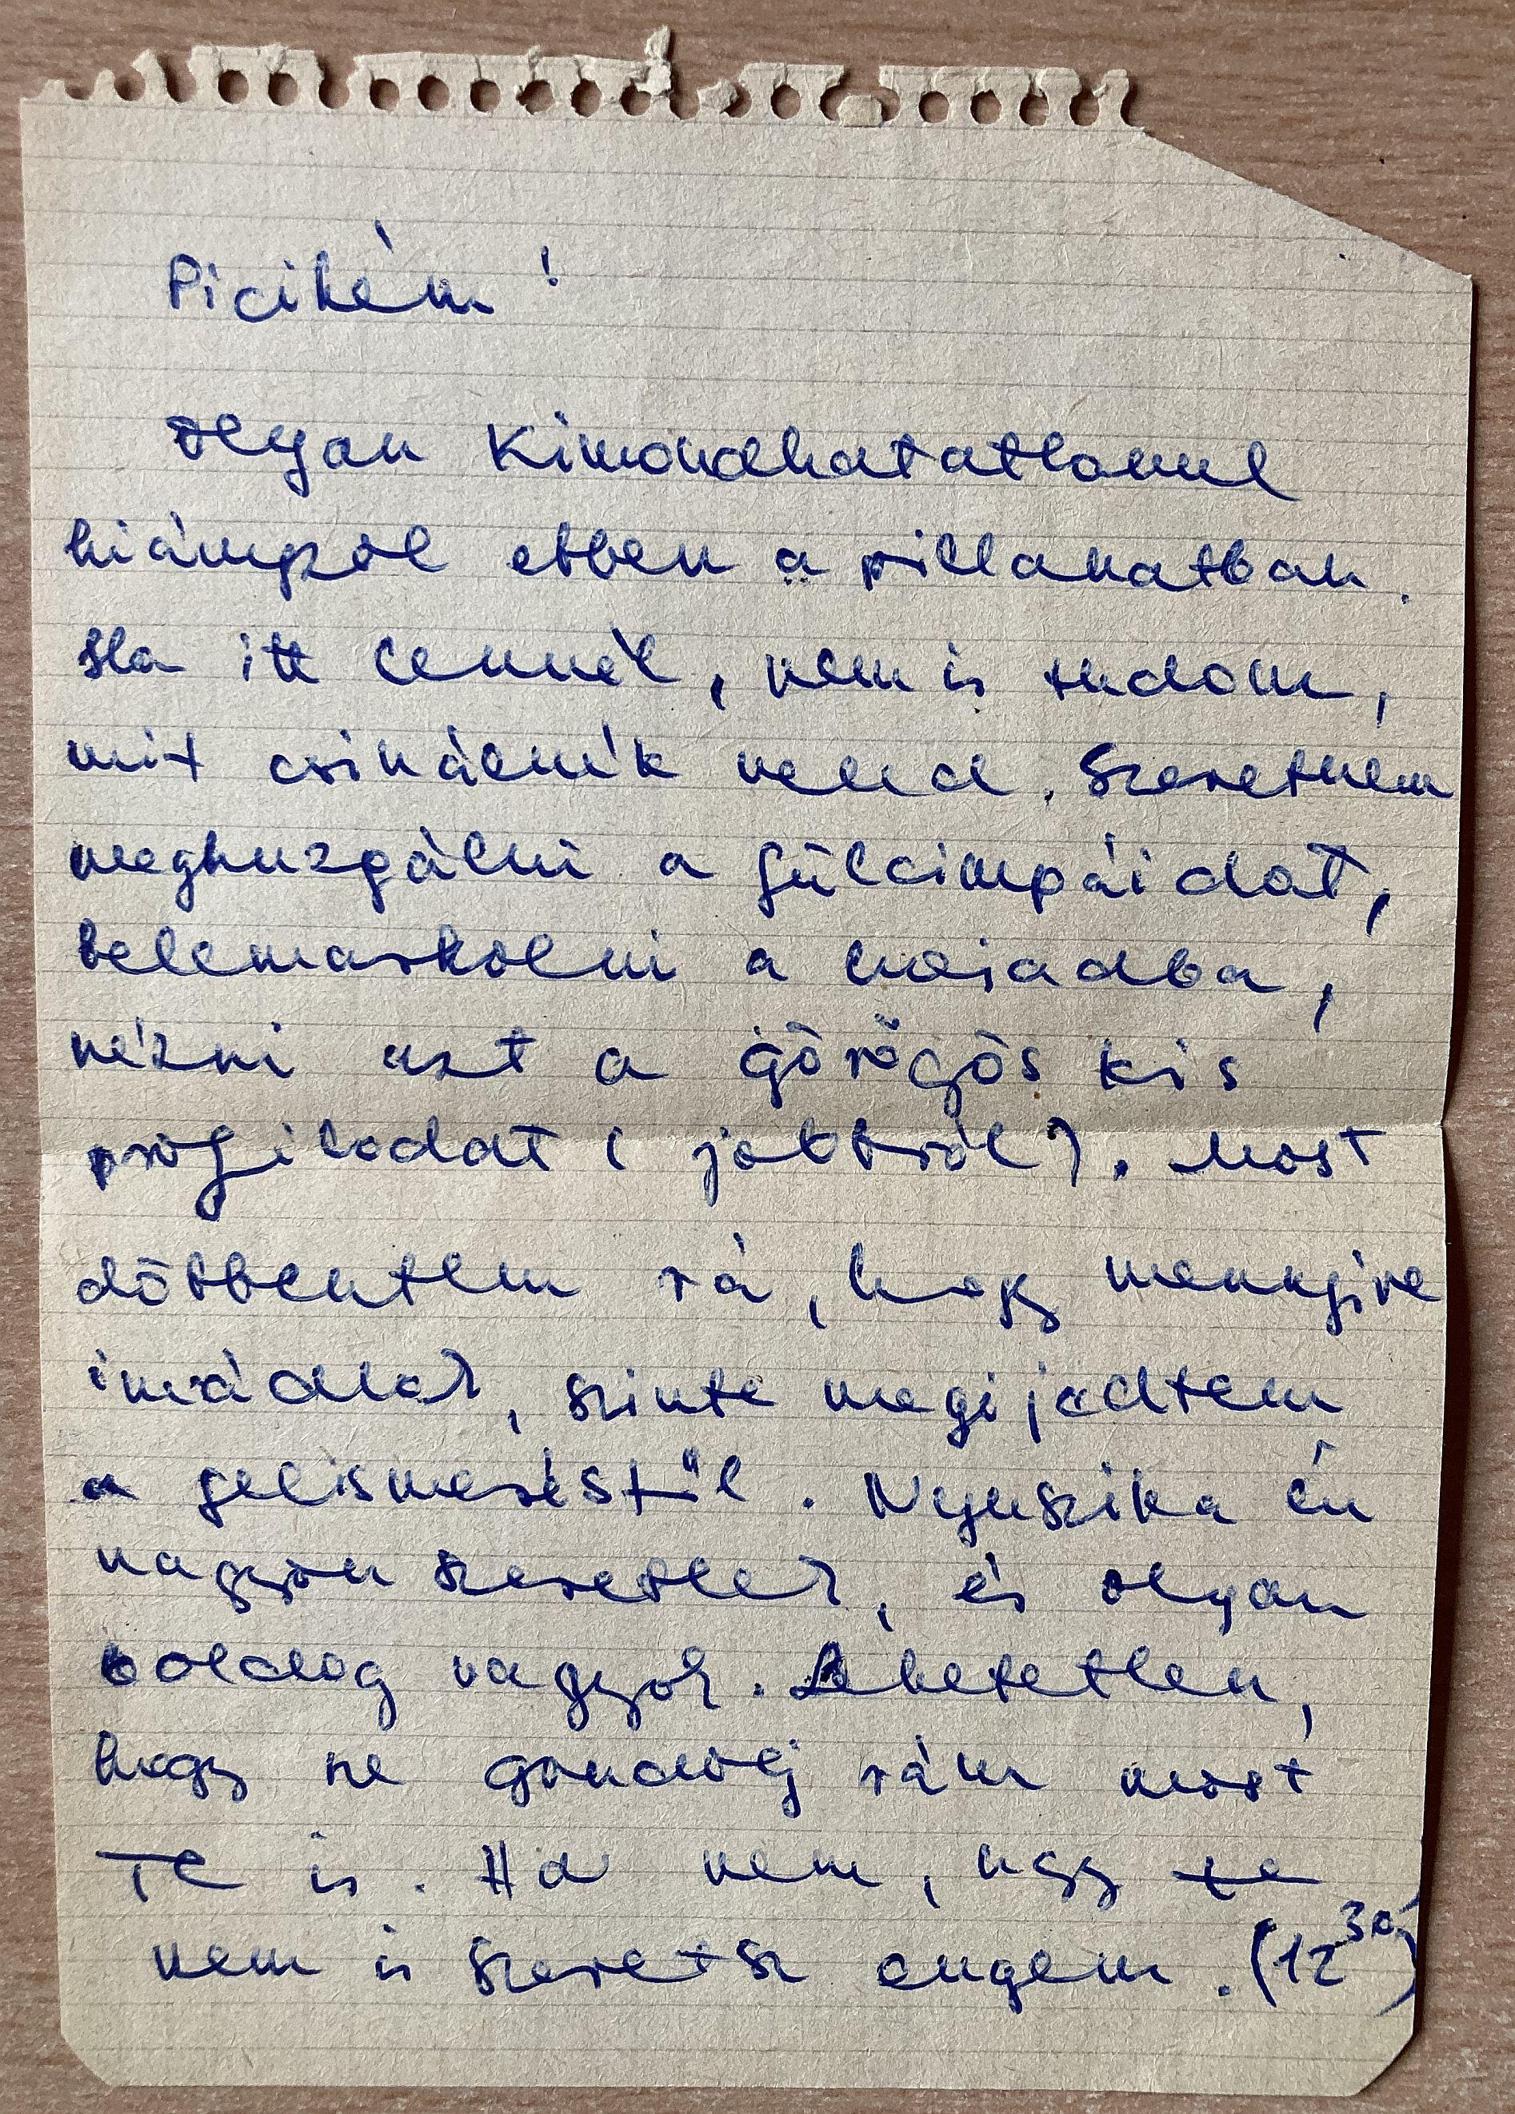 Picikém!
olyan kimondhatatlanul
hiányzol ebben a pillanatban.
Ha itt lennél, nem is tudom,
mit csinálnék veled. Szeretném
meghuzgálni a fülcimpáidat,
belemarkolni a hajadba,
nézni azt a görögös kis
profilodat (jobbról). Most
döbbentem rá, hogy mennyire
imádlak, szinte megijedtem
a felismeréstől. Nyuszika én
nagyon szeretlek, és olyan
boldog vagyok. Lehetetlen,
hogy ne gondolj rám most
Te is. Ha nem, úgy te
nem is szeretsz engem. (12³⁰)